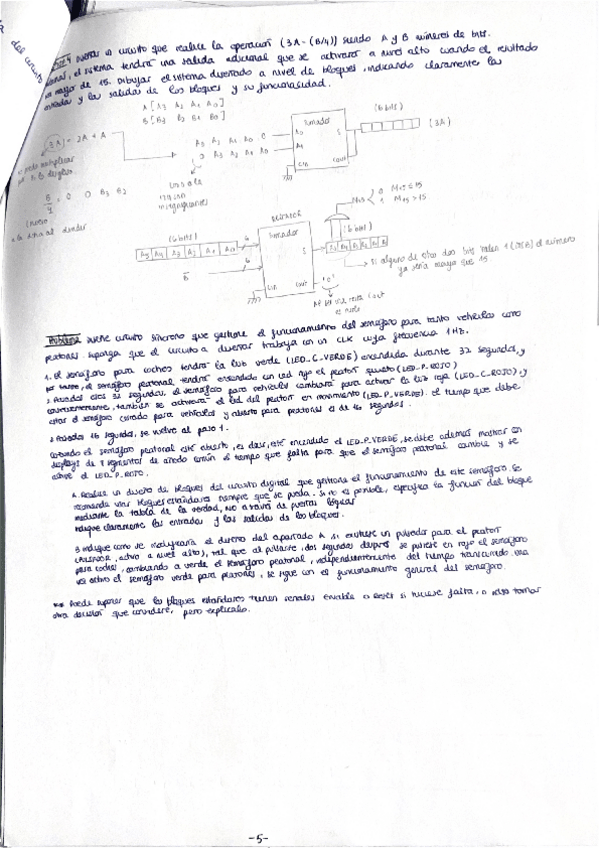 un circuito que realice la operación (3A - (B/4)) siendo A y B números de bits.
el sistema tendrá una salida adicional que se activará a nivel alto cuando el resultado
mayor de 15. Dibujar el sistema diseñado a nivel de bloques, indicando claramente la
entrada y las salidas de los bloques y su funcionalidad.
del circuito
A [A3 A2 A1 A0]
B [B3 B2 B1 B0]
(3A) = 2A + A
A3 A2 A1 A0 0
0 A3 A2 A1 A0
Sumador
S
Cin
Cout
(6 bits)
(3A)
B/4 = 0 0 B3 B2
RESTADOR
Sumador
S
Cin
Cout
(6 bits)
6
(6 bits)
6
B
0 M+S ≤ 15
1 M+S > 15
Si alguno de estos dos bits valen 1 el número
ya sería mayor que 15
"0"
Al ser una resta Cout
Problema circuito síncrono que gestione el funcionamiento del semáforo para tanto vehículos como
peatones suponga que el circuito a diseñar trabaja con un CLK cuya frecuencia 1 HZ.
1. el semáforo para coches tendrá la luz verde (LED_C_VERDE) encendida durante 32 segundos, y
por tanto, el semáforo peatonal tendrá encendido un led rojo el peatón quieto (LED_P_ROJO)
2 Pasados esos 32 segundos, el semáforo para vehículos cambiará para activar la luz roja (LED_C_ROJO), y
también se activará el led del peatón en movimiento (LED_P_VERDE). el tiempo que debe
estar el semáforo cerrado para vehículos y abierto para peatones es de 16 segundos.
3 Pasados 16 segundos, se vuelve al paso 1.
Cuando el semáforo peatonal esté abierto, es decir, esté encendido el LED_P_VERDE, se debe además mostrar en
displays de 7 segmentos de ánodo común el tiempo que falta para que el semáforo peatonal cambie y se
active el LED_P_ROJO.
A. Realice un diseño de bloques del circuito digital que gestiona el funcionamiento de este semáforo. Se
recomienda usar bloques estándares siempre que se pueda. Si no es posible, especifica la función del bloque
mediante la tabla de la verdad, NO a través de puertas lógicas
Indique claramente las entradas y las salidas de los bloques.
B Indique como se modificaría el diseño del apartado A si existiese un pulsador para el peatón
(PULSADOR, activo a nivel alto), tal que al pulsarse, dos segundos después se pusiese en rojo el semáforo
para coches, cambiando a verde el semáforo peatonal, independientemente del tiempo transcurrido. Una
vez activo el semáforo verde para peatones, se sigue con el funcionamiento general del semáforo.
** Puede suponer que los bloques estándares tienen señales enable o reset si hiciese falta, o tomar
otra decisión que considere, pero explícalo.
-5-